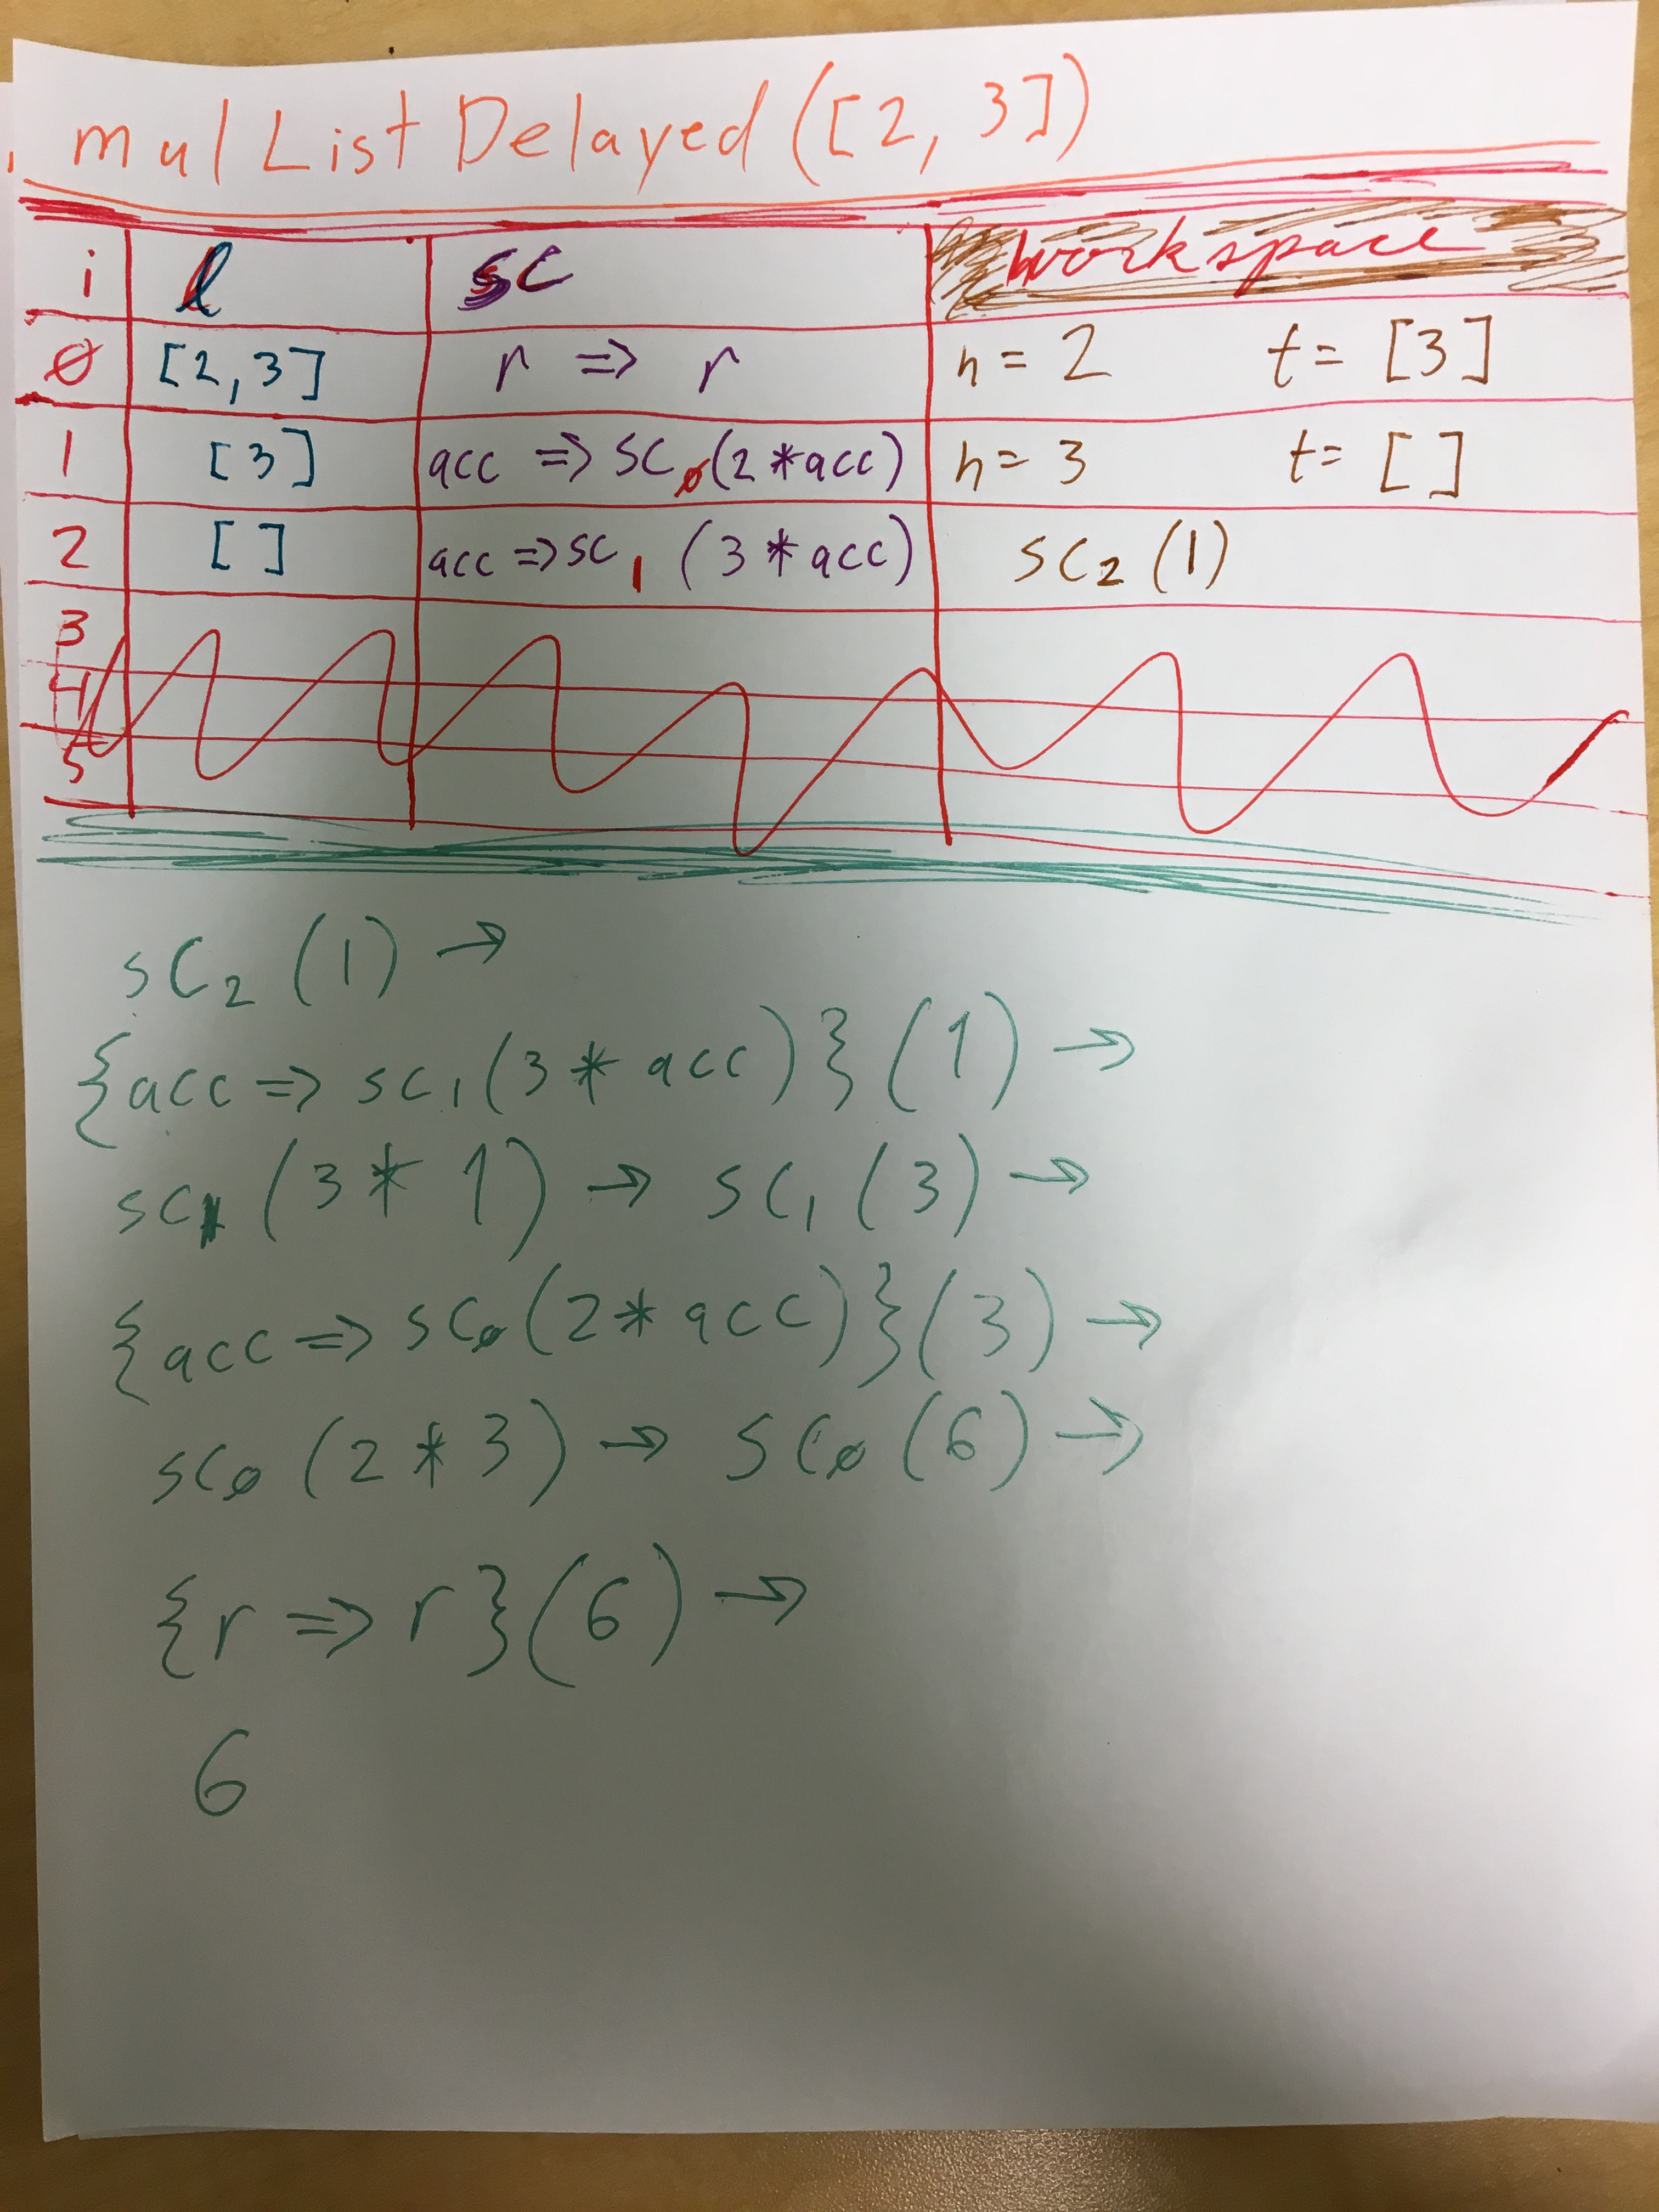 mulListDelayed([2, 3])
i l sc workspace
0 [2,3] r => r h = 2 t = [3]
1 [3] acc => sc₀(2*acc) h = 3 t = []
2 [] acc => sc₁ (3*acc) sc₂(1)
3
4
5
sc₂ (1) →
{acc => sc₁(3* acc)}(1) →
sc₁ (3* 1) → sc₁ (3) →
{acc => sc₀(2* acc)}(3) →
sc₀ (2*3) → sc₀ (6) →
{r => r}(6) →
6